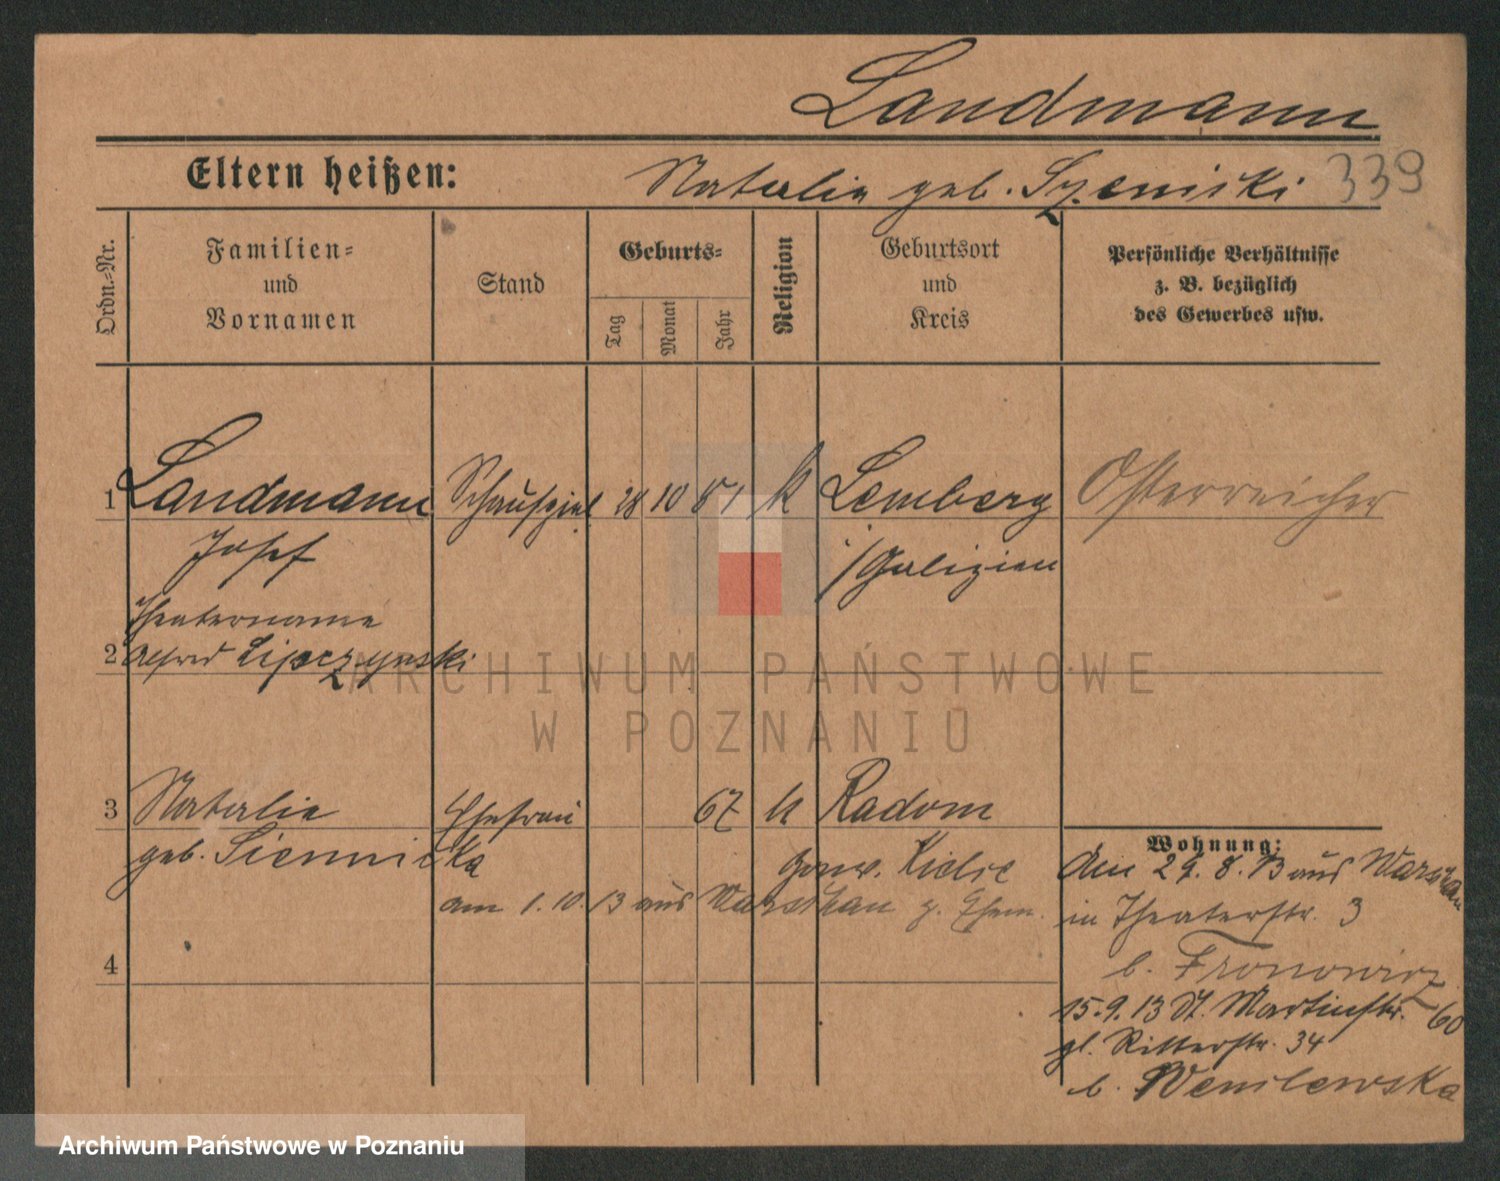 Landmann
Eltern heißen:
Natalie geb. Szeniski 339
Ordn.-Nr.
Familien-
und
Vornamen
Stand
Geburts-
Tag
Monat
Jahr
Religion
Geburtsort
und
Kreis
Persönliche Verhältnisse
z. B. bezüglich
des Gewerbes usw.
1 Landmann Schauspiel. 28 10 81 k Lemberg Österreicher
Josef /Galizien
Theatername
2 Alfred Lipczynski
3 Natalie Ehefrau 67 k Radom
geb. Siennicka Gouv. Kielce
am 1.10.13 aus Warschau z. Ehem.
4
Wohnung:
Am 29.8.13 aus Warschau
in Theaterstr. 3
b. Fronowicz
15.9.13 St. Martinstr. 60
gl. Ritterstr. 34
b.
ARCHIWUM PAŃSTWOWE
W POZNANIU
Archiwum Państwowe w Poznaniu